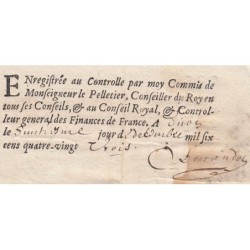 ENregistrée au Controlle par moy Commis de
Monseigneur le Pelletier, Conseiller du Roy en
tous ses Conseils, & au Conseil Royal, & Control-
leur general des Finances de France. A
le jour d Decembre mil six
cens quatre-vingt Trois.